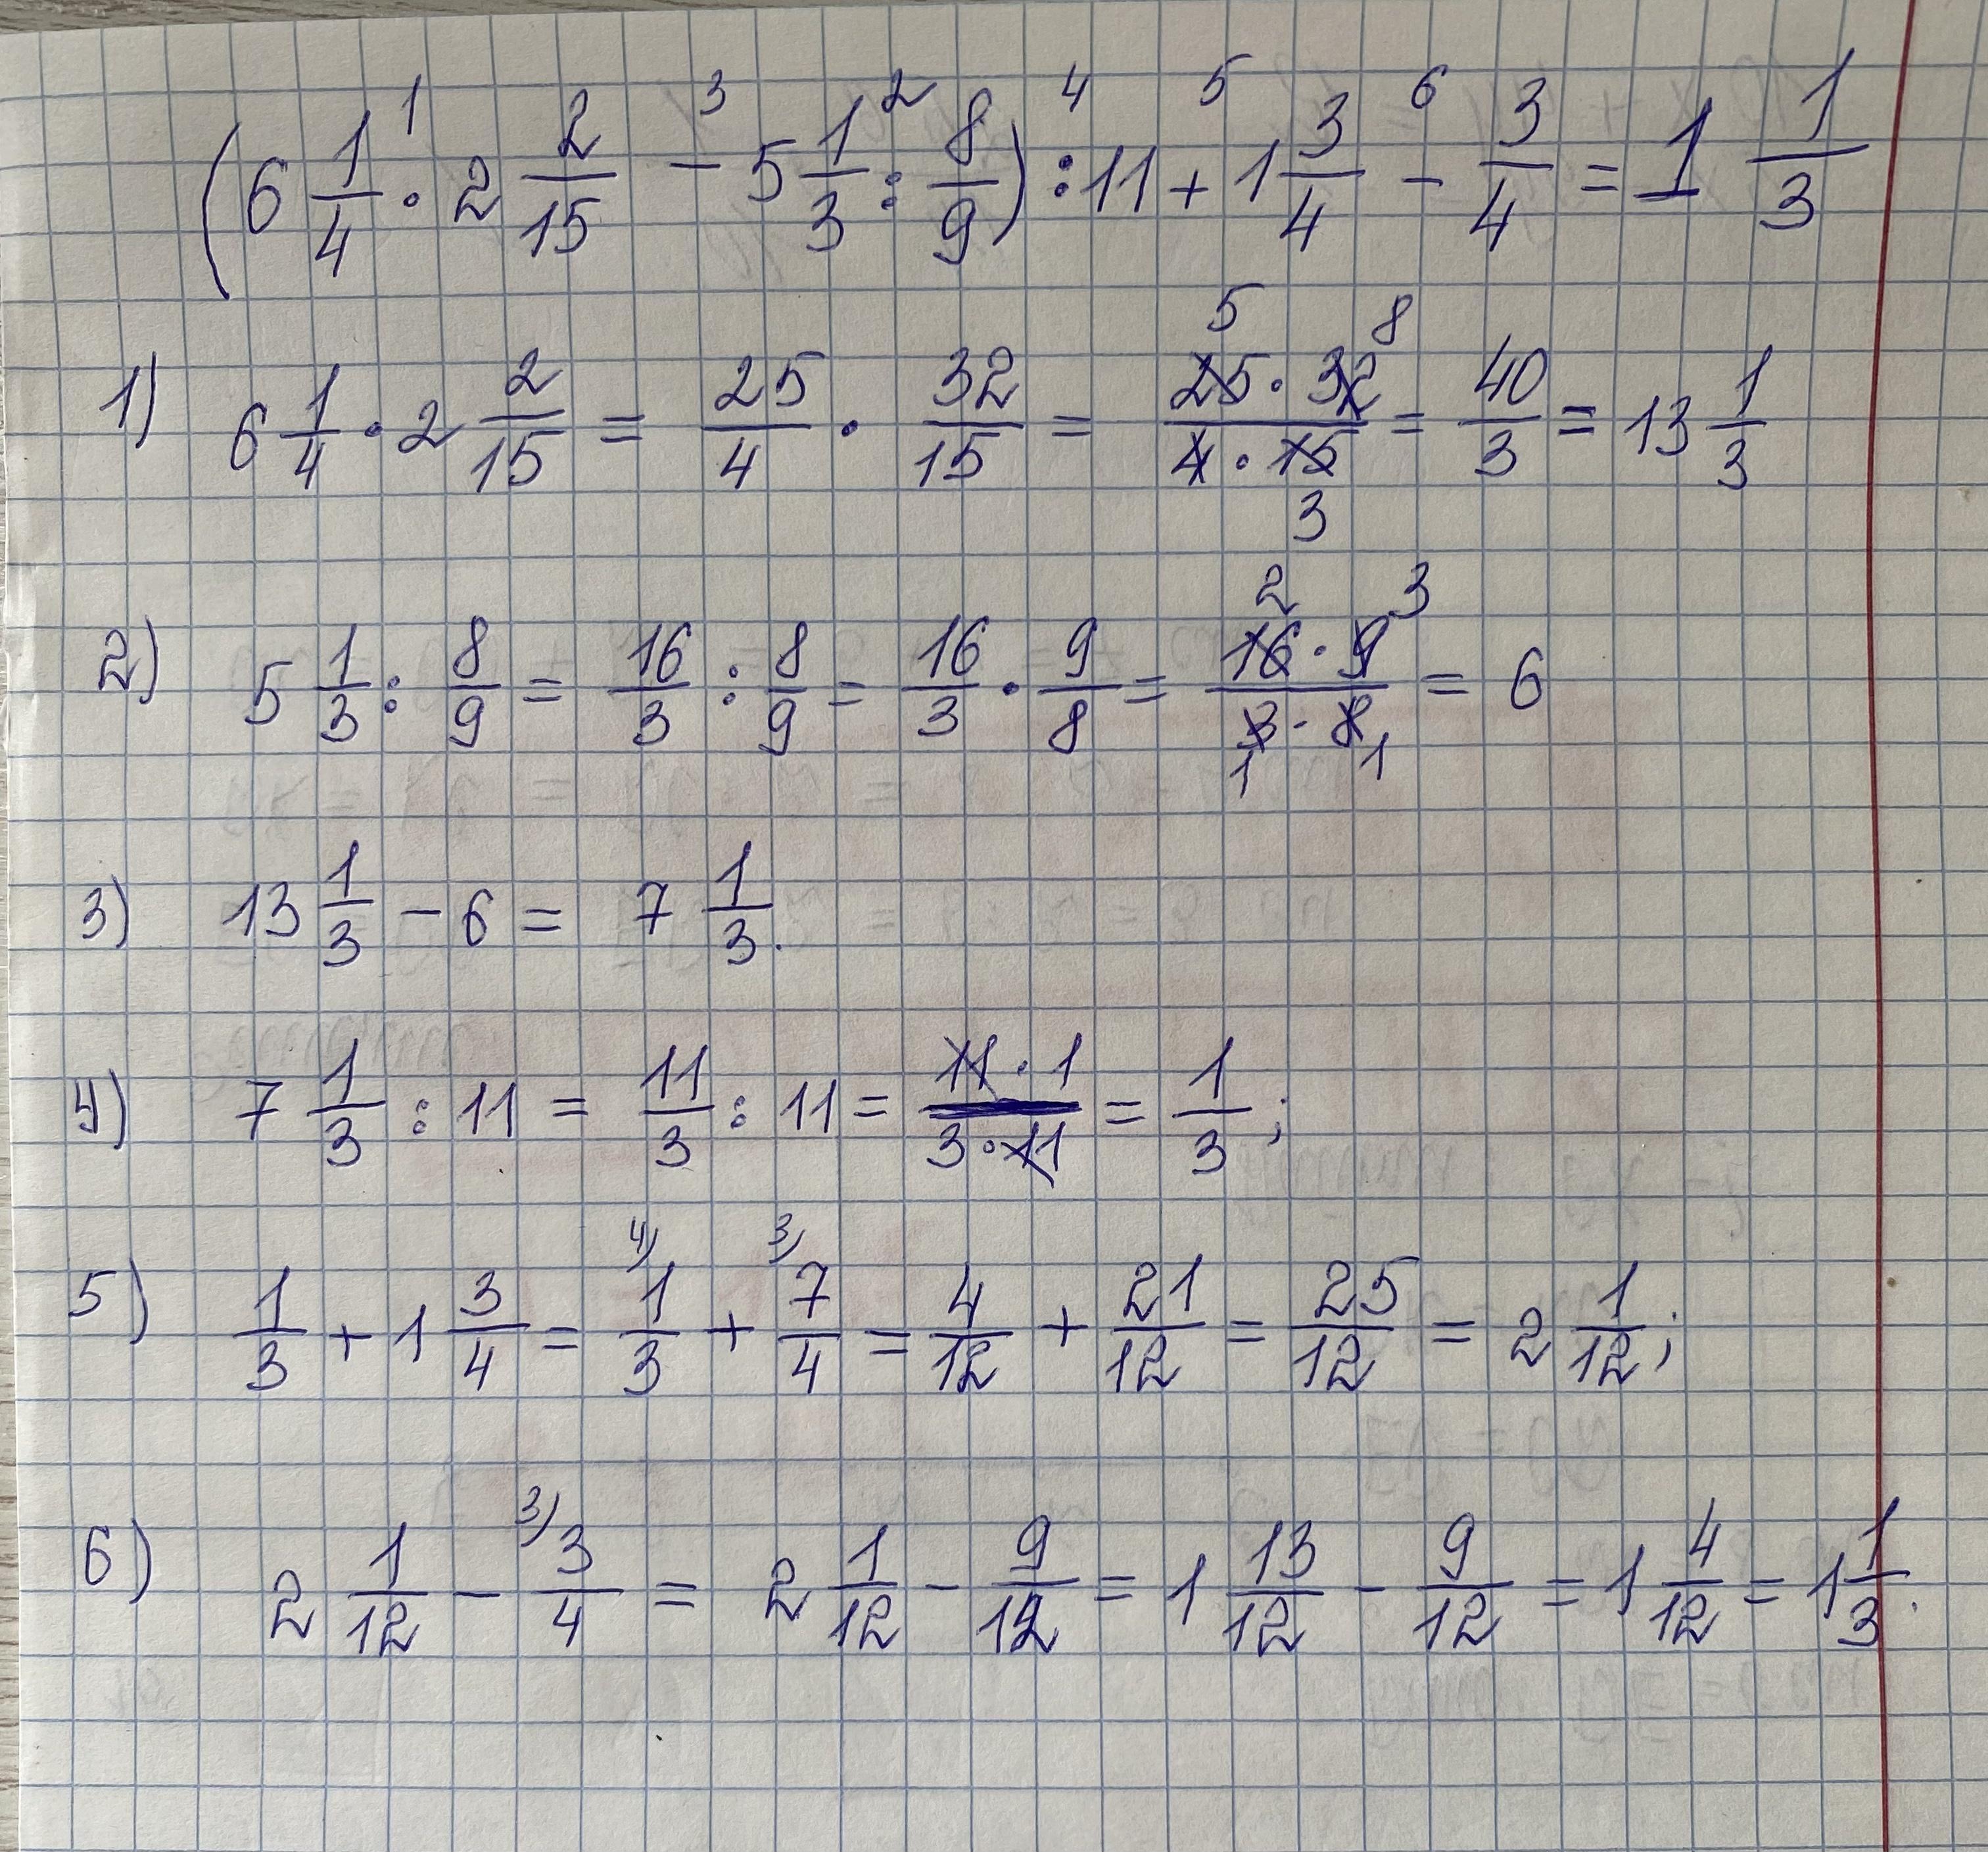 (6 1/4 · 2 2/15 - 5 1/3 : 8/9) : 11 + 1 3/4 - 3/4 = 1 1/3
1) 6 1/4 · 2 2/15 = 25/4 · 32/15 = (25 · 32)/(4 · 15) = 40/3 = 13 1/3
2) 5 1/3 : 8/9 = 16/3 : 8/9 = 16/3 · 9/8 = (16 · 9)/(3 · 8) = 6
3) 13 1/3 - 6 = 7 1/3.
4) 7 1/3 : 11 = 11/3 : 11 = (11 · 1)/(3 · 11) = 1/3;
5) 1/3 + 1 3/4 = 1/3 + 7/4 = 4/12 + 21/12 = 25/12 = 2 1/12;
6) 2 1/12 - 3/4 = 2 1/12 - 9/12 = 1 13/12 - 9/12 = 1 4/12 = 1 1/3.